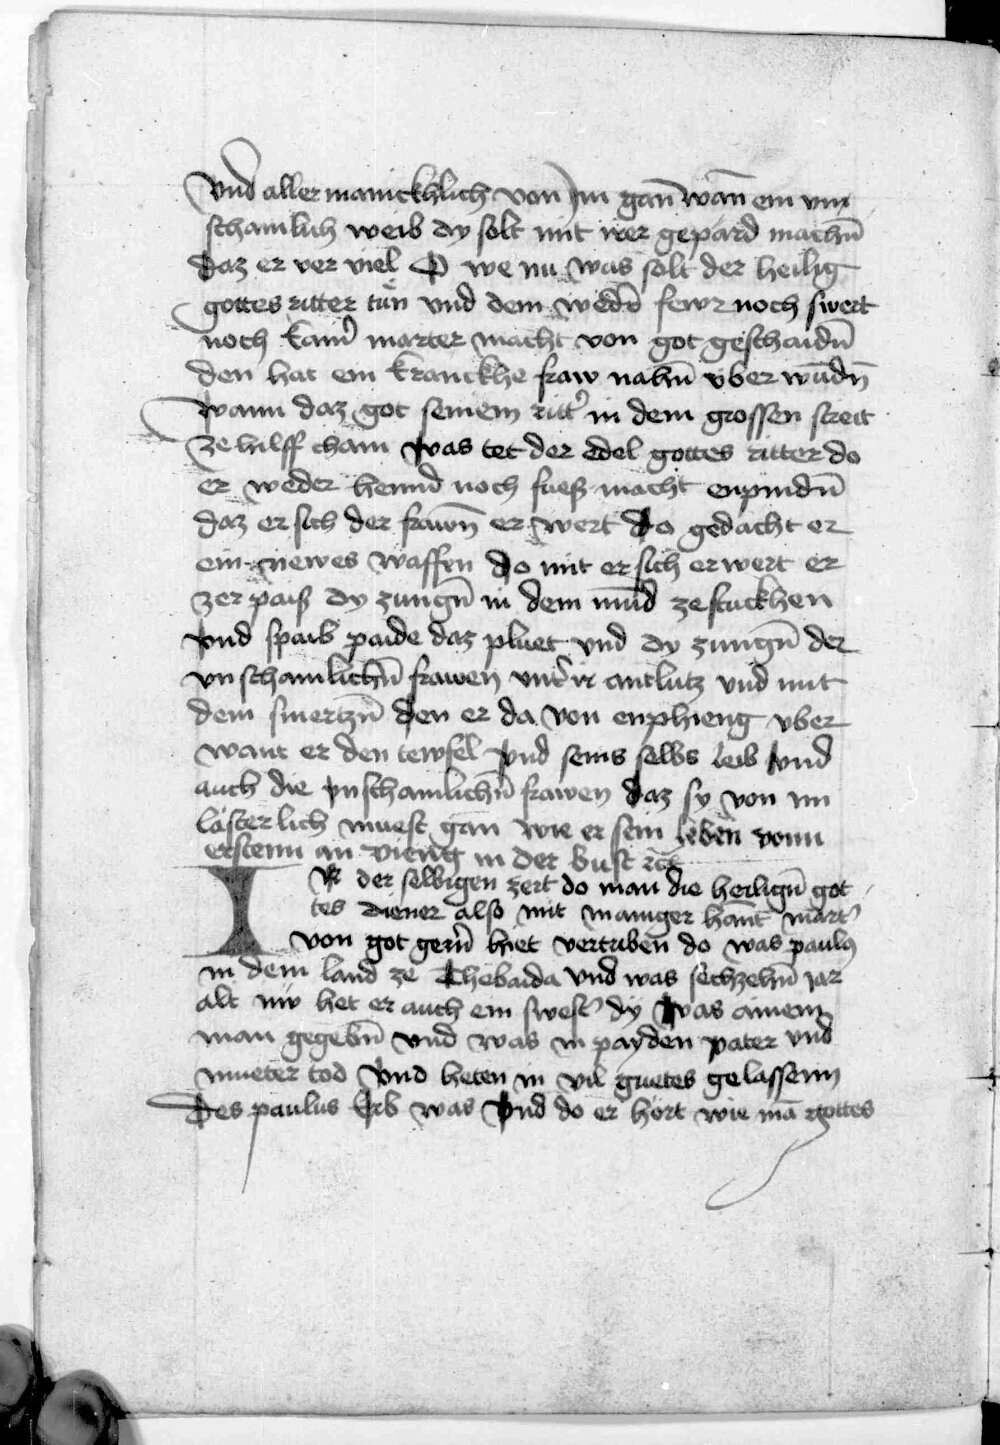 Vnd aller manickhlich von im gan̄ wan̄ ein vn
schamlich weib dy solt mit irer gepärd machn̄
daz er ver viel O we nu was solt der heilig
gottes ritter tůn vnd dem wedˀ fewr noch swert
noch kainˀ marter macht von got geschaidn̄
den hat ein kranckhe fraw nahn̄ vber wūdn̄
wann daz got seinem rittˀ in dem grossen streit
ze hilff cham was tet der edel gottes ritter do
er weder hennd noch fuesz macht enpindn̄
daz er sich der frawn̄ er wert do gedacht er
ein newes waffen do mit er sich erwert er
zer paisz dy zungn̄ in dem mūd ze stuckhen
vnd spaib paide daz pluet vnd dy zungn̄ der
vnschamlichn̄ frawen vntˀ ir antlutz vnd mit
dem smertzn̄ den er da von enphieng vber
want er den tewfel vnd seins selbs leib vnd
auch die vnschamlichn̄ frawen daz sy von im
lästerlich muest gan wie er sein leben vonn
erstenn an vieng in der wuest etc
In der selbigen zeit do man die heilign̄ got
tes diener also mit maniger hant martˀ
von got gern̄ hiet vertriben do was paulꝰ
in dem land ze Thebaida vnd was sechzehn̄ jar
alt nw het er auch ein swestˀ dy was ainem
man gegebn̄ vnd was in payden vater vnd
mueter tod vnd heten in vil guetes gelassenn
Des paulus Erb was vnd do er hort wie mā gottes